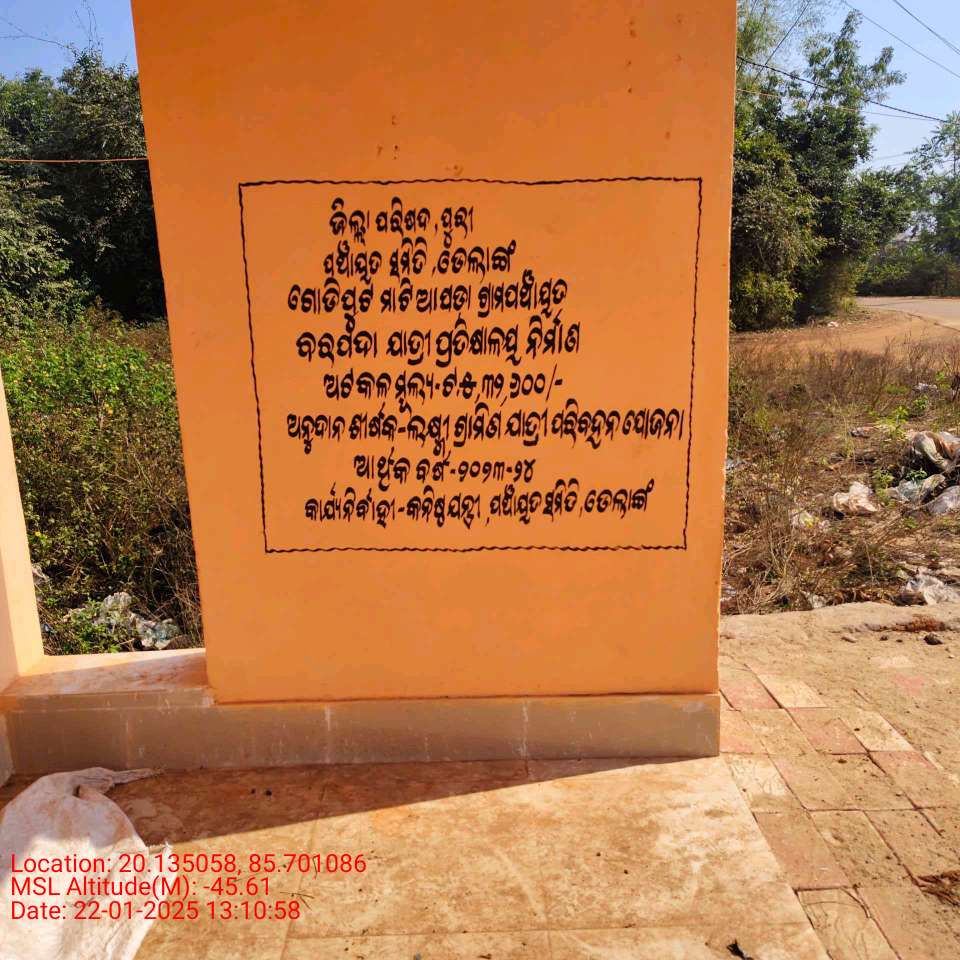 ଜିଲ୍ଲା ପରିଷଦ, ପୁରୀ
ପଞ୍ଚାୟତ ସମିତି, ଡେଲାଙ୍ଗ
ଗୋଡିପୁଟ ମାଟିଆପଡ଼ା ଗ୍ରାମପଞ୍ଚାୟତ
ବରପଦା ଯାତ୍ରୀ ପ୍ରତିକ୍ଷାଳୟ ନିର୍ମାଣ
ଅଟକଳ ମୂଲ୍ୟ-ଟ.୫,୩୨,୬୦୦/-
ଅନୁଦାନ ଶୀର୍ଷକ-ଲକ୍ଷ୍ମୀ ଗ୍ରାମିଣ ଯାତ୍ରୀ ପରିବହନ ଯୋଜନା
ଆର୍ଥିକ ବର୍ଷ-୨୦୨୩-୨୪
କାର୍ଯ୍ୟନିର୍ବାହୀ-କନିଷ୍ଠ ଯନ୍ତ୍ରୀ, ପଞ୍ଚାୟତ ସମିତି, ଡେଲାଙ୍ଗ
Location: 20.135058, 85.701086
MSL Altitude(M): -45.61
Date: 22-01-2025 13:10:58